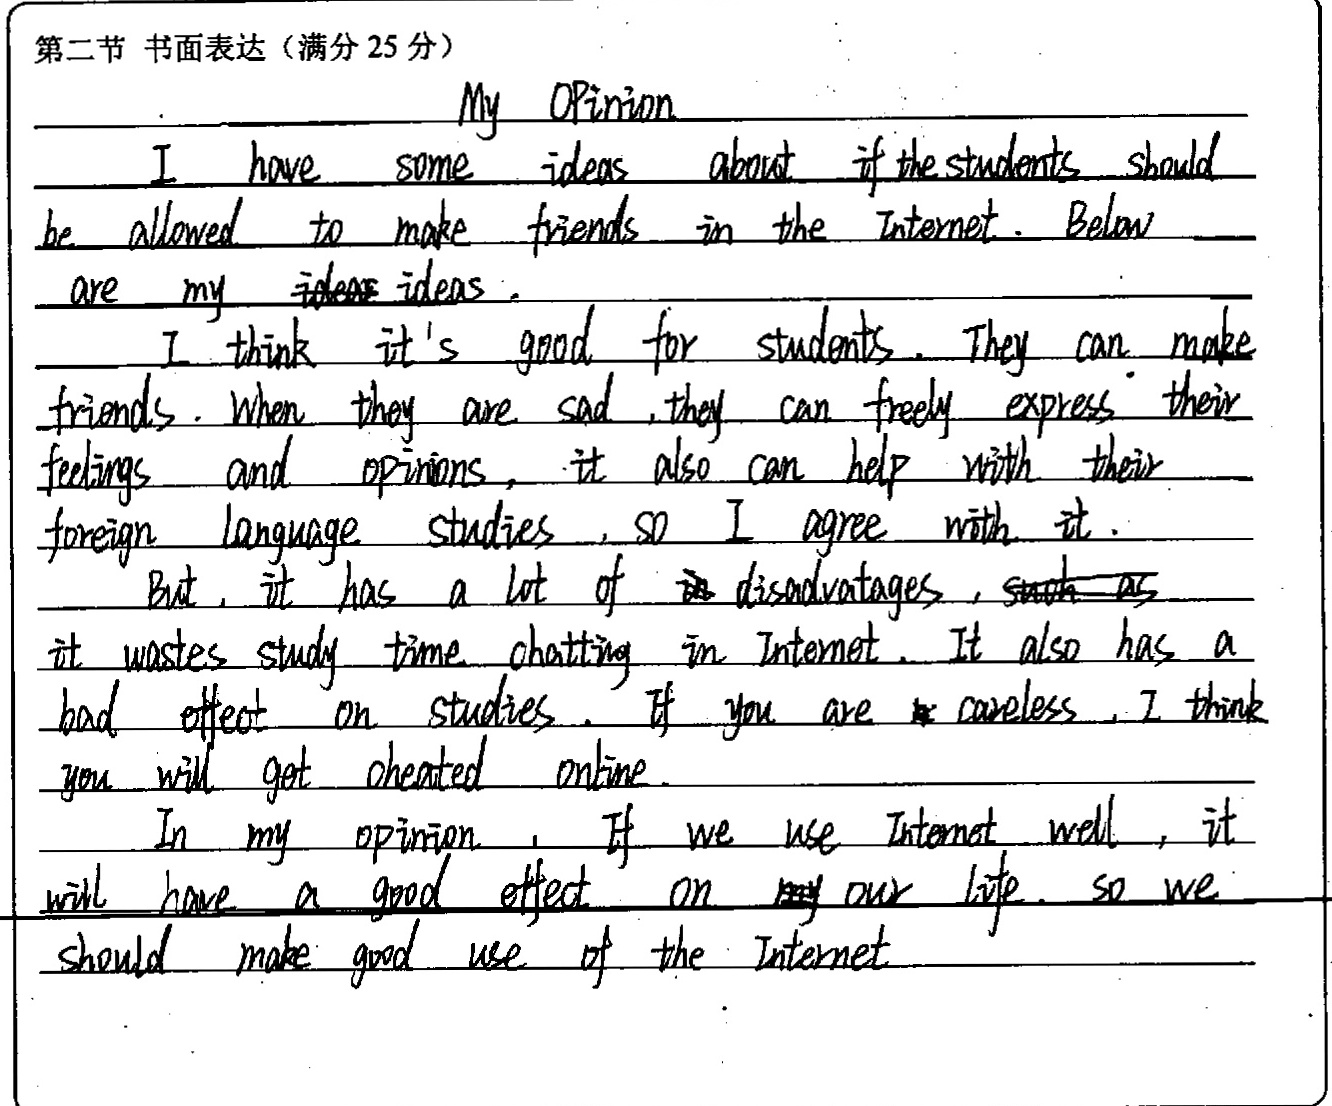 第二节 书面表达（满分 25 分）
My Opinion
I have some ideas about if the students should
be allowed to make friends in the Internet. Below
are my ideas ideas.
I think it's good for students. They can make
friends. When they are sad, they can freely express their
feelings and opinions, it also can help with their
foreign language studies, so I agree with it.
But, it has a lot of in disadvatages, such as
it wastes study time chatting in Internet. It also has a
bad effect on studies. If you are careless, I think
you will get cheated online.
In my opinion, If we use Internet well, it
will have a good effect on my our life. so we
should make good use of the Internet